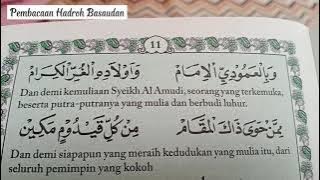 Pembacaan Hadroh Basaudan
11
وَبِالْعَمُودِيِّ الْإِمَامْ وَأَوْلَادِهِ الْغُرِّ الْكِرَامْ
Dan demi kemuliaan Syeikh Al Amudi, seorang yang terkemuka,
beserta putra-putranya yang mulia dan berbudi luhur.
مِمَّنْ حَوَى ذَاكَ الْمَقَامْ مِنْ كُلِّ قَيْدُوْمٍ مَكِيْن
Dan demi siapapun yang meraih kedudukan yang mulia itu, dari
seluruh pemimpin yang kokoh